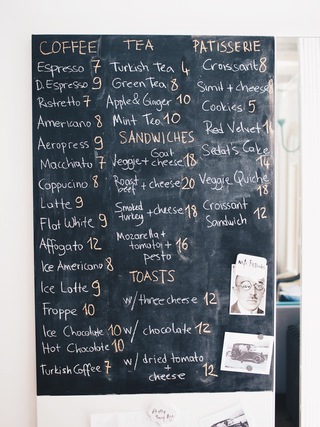 COFFEE
Espresso 7
D. Espresso 9
Ristretto 7
Americano 8
Aeropress 9
Macchiato 7
Cappucino 8
Latte 9
Flat White 9
Affogato 12
Ice Americano 8
Ice Latte 9
Frappe 10
Ice Chocolate 10
Hot Chocolate 10
Turkish Coffee 7
TEA
Turkish Tea 4
Green Tea 8
Apple & Ginger 10
Mint Tea 10
SANDWICHES
Veggie + Goat cheese 18
Roast beef + cheese 20
Smoked turkey + cheese 18
Mozarella +
tomato + 16
pesto
TOASTS
w/ three cheese 12
w/ chocolate 12
w/ dried tomato
+
cheese 12
PATISSERIE
Croissant 8
Simit + cheese 8
Cookies 5
Red Velvet
Sedat's Cake
14
Veggie Quiche
18
Croissant
Sandwich 12